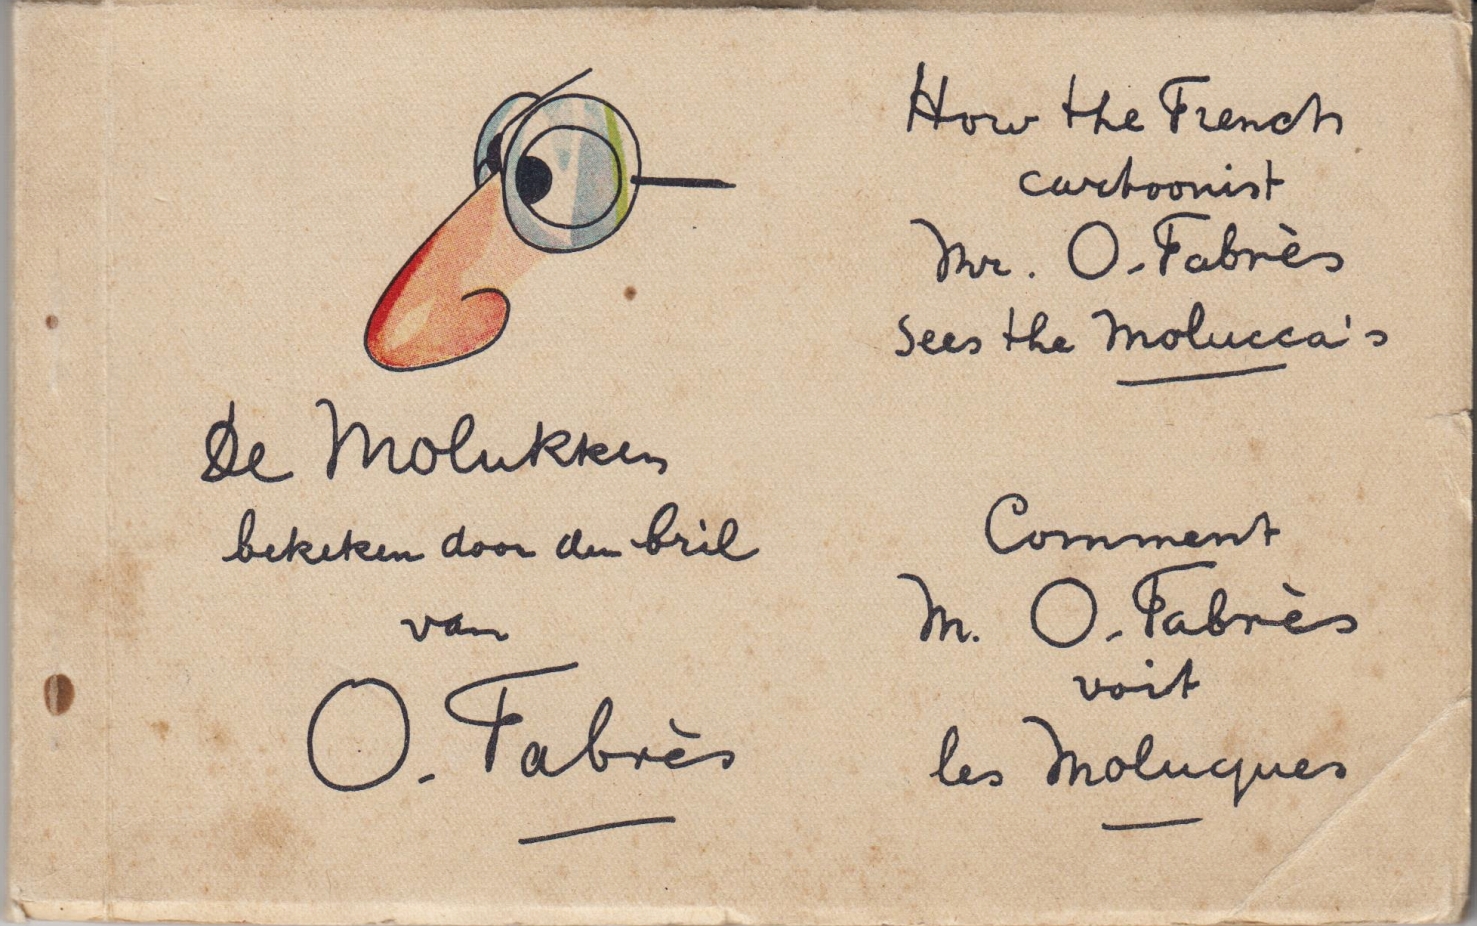 De Molukken
bekeken door den bril
van
O. Fabrès
How the French
cartoonist
Mr. O. Fabrès
sees the Molucca's
Comment
M. O. Fabrès
voit
les Moluques